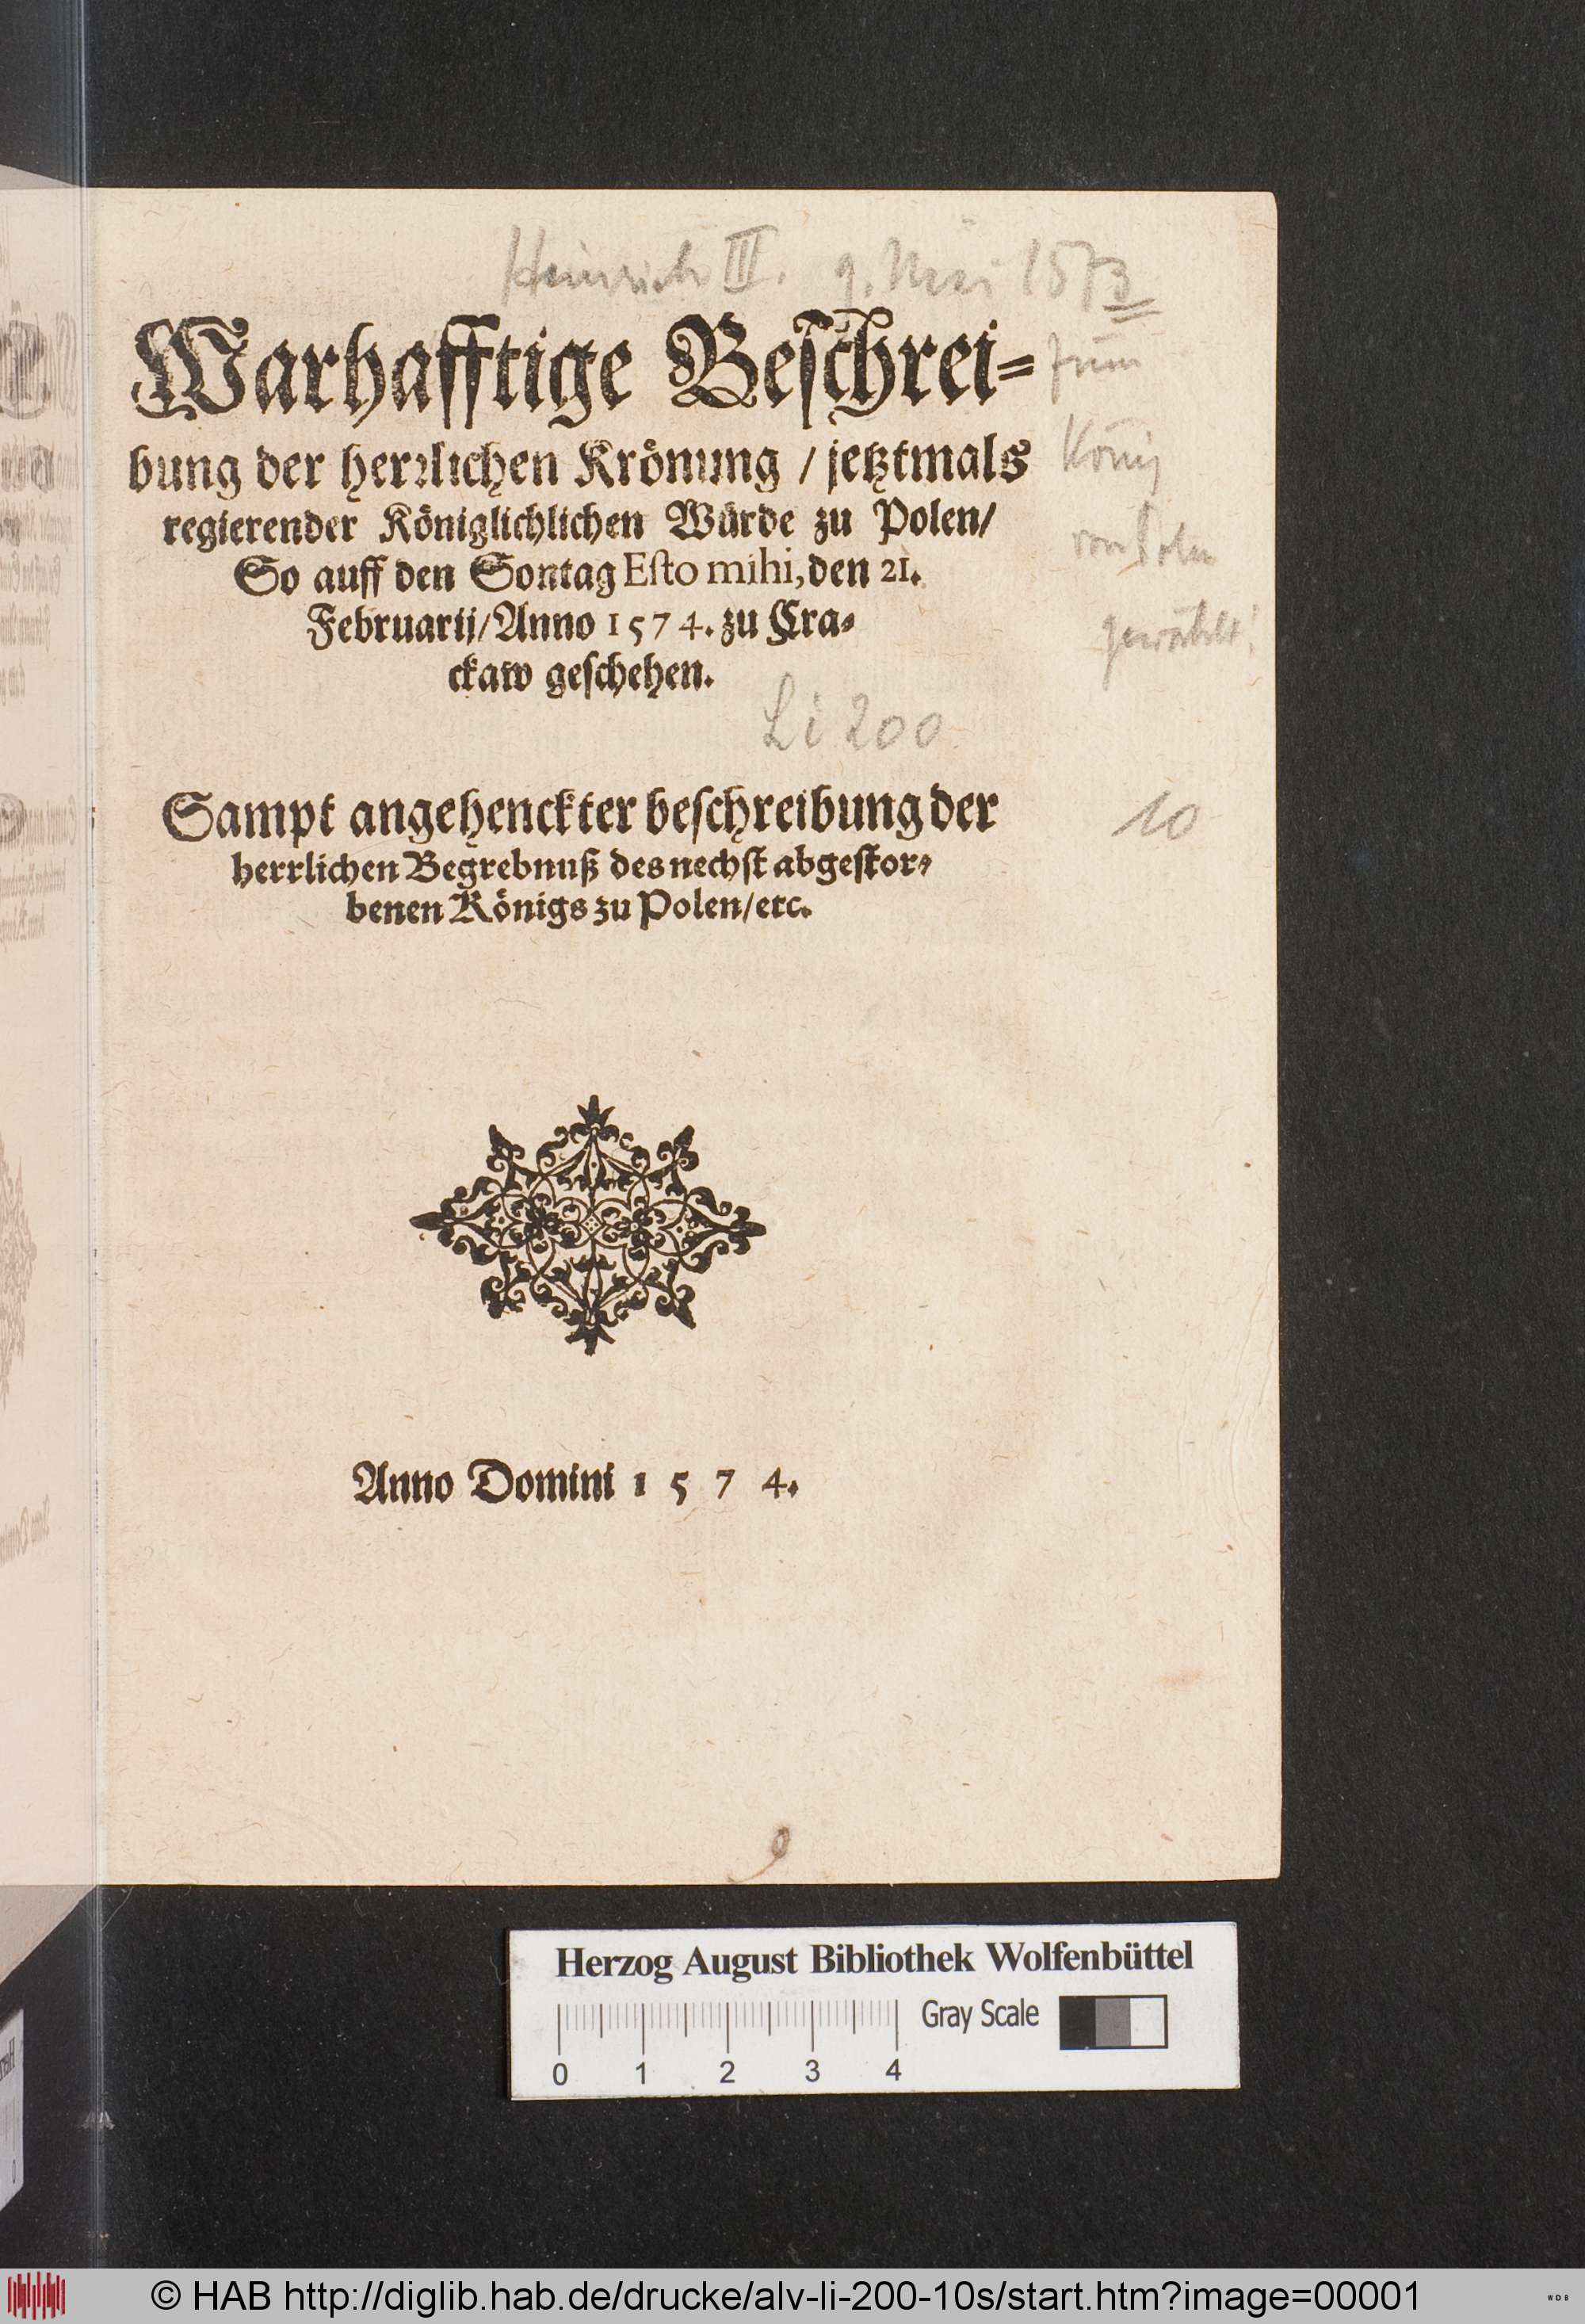 Heinrich III. 9. Mai 1573
Warhafftige Beſchrei-
zum
bung der herrlichen Krönung / jetztmals
König
regierender Königlichlichen Würde zu Polen/
von Polen
So auff den Sontag Eſto mihi, den 21.
Februarij/Anno 1574. zu Cra-
gewählt!
ckaw geſchehen.
Li 200
Sampt angehenckter beſchreibung der
10
herrlichen Begrebnuß des nechſt abgeſtor-
benen Königs zu Polen/etc.
Anno Domini 1 5 7 4.
Herzog August Bibliothek Wolfenbüttel
Gray Scale
0 1 2 3 4
© HAB http://diglib.hab.de/drucke/alv-li-200-10s/start.htm?image=00001
WDB